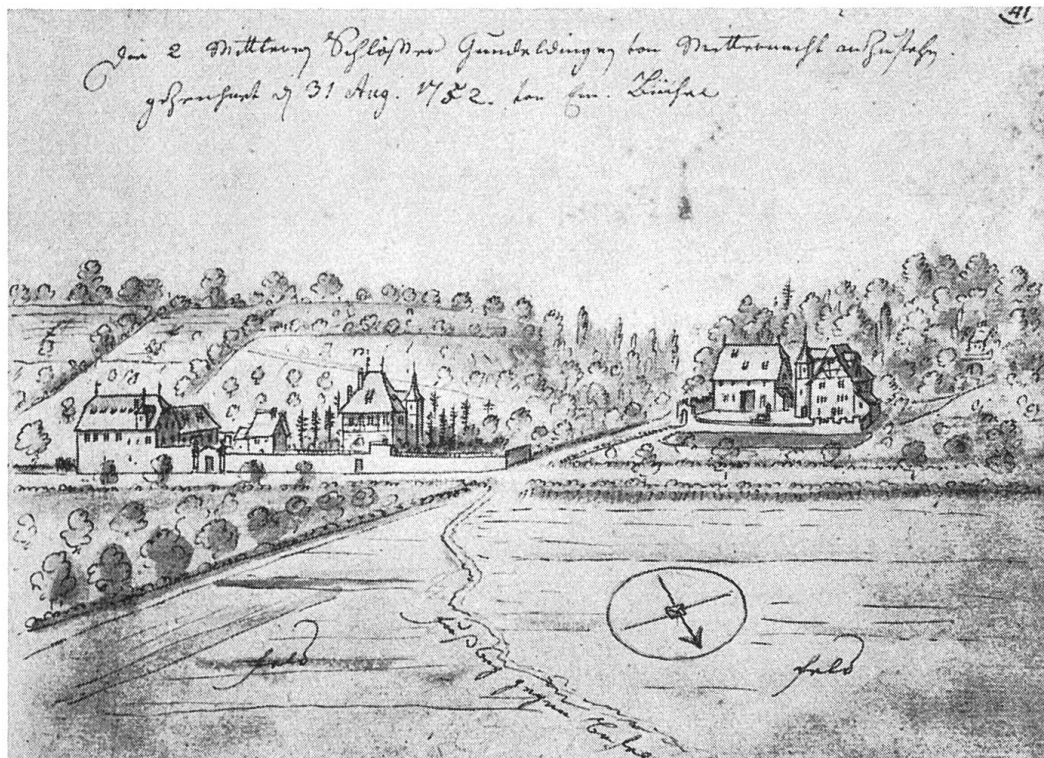 41
Die 2 Mittlern Schlösser Gundeldingen von Mitternacht anzusehen.
gezeichnet d 31 Aug. 1752. von Em. Büchel
Feld
Feld
Fußweg gegen Basel